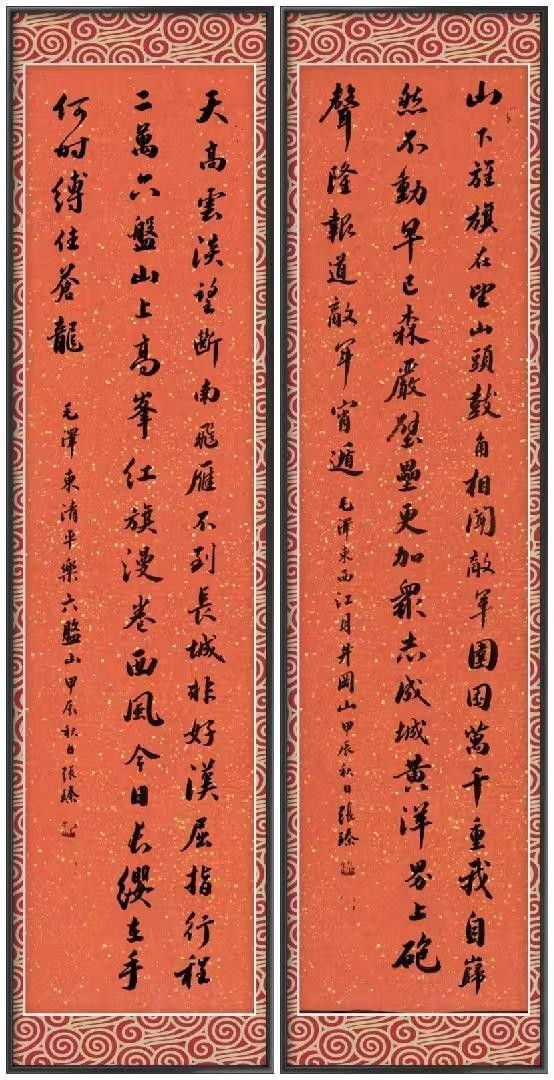 山下旌旗在望山頭鼓角相聞敵軍圍困萬千重我自巋
然不動早已森嚴壁壘更加衆志成城黃洋界上砲
聲隆報道敵軍宵遁
毛澤東西江月井岡山甲辰秋日張
天高雲淡望斷南飛雁不到長城非好漢屈指行程
二萬六盤山上高峯紅旗漫卷西風今日长纓在手
何时縛住蒼龍
毛澤東清平樂六盤山甲辰秋日張